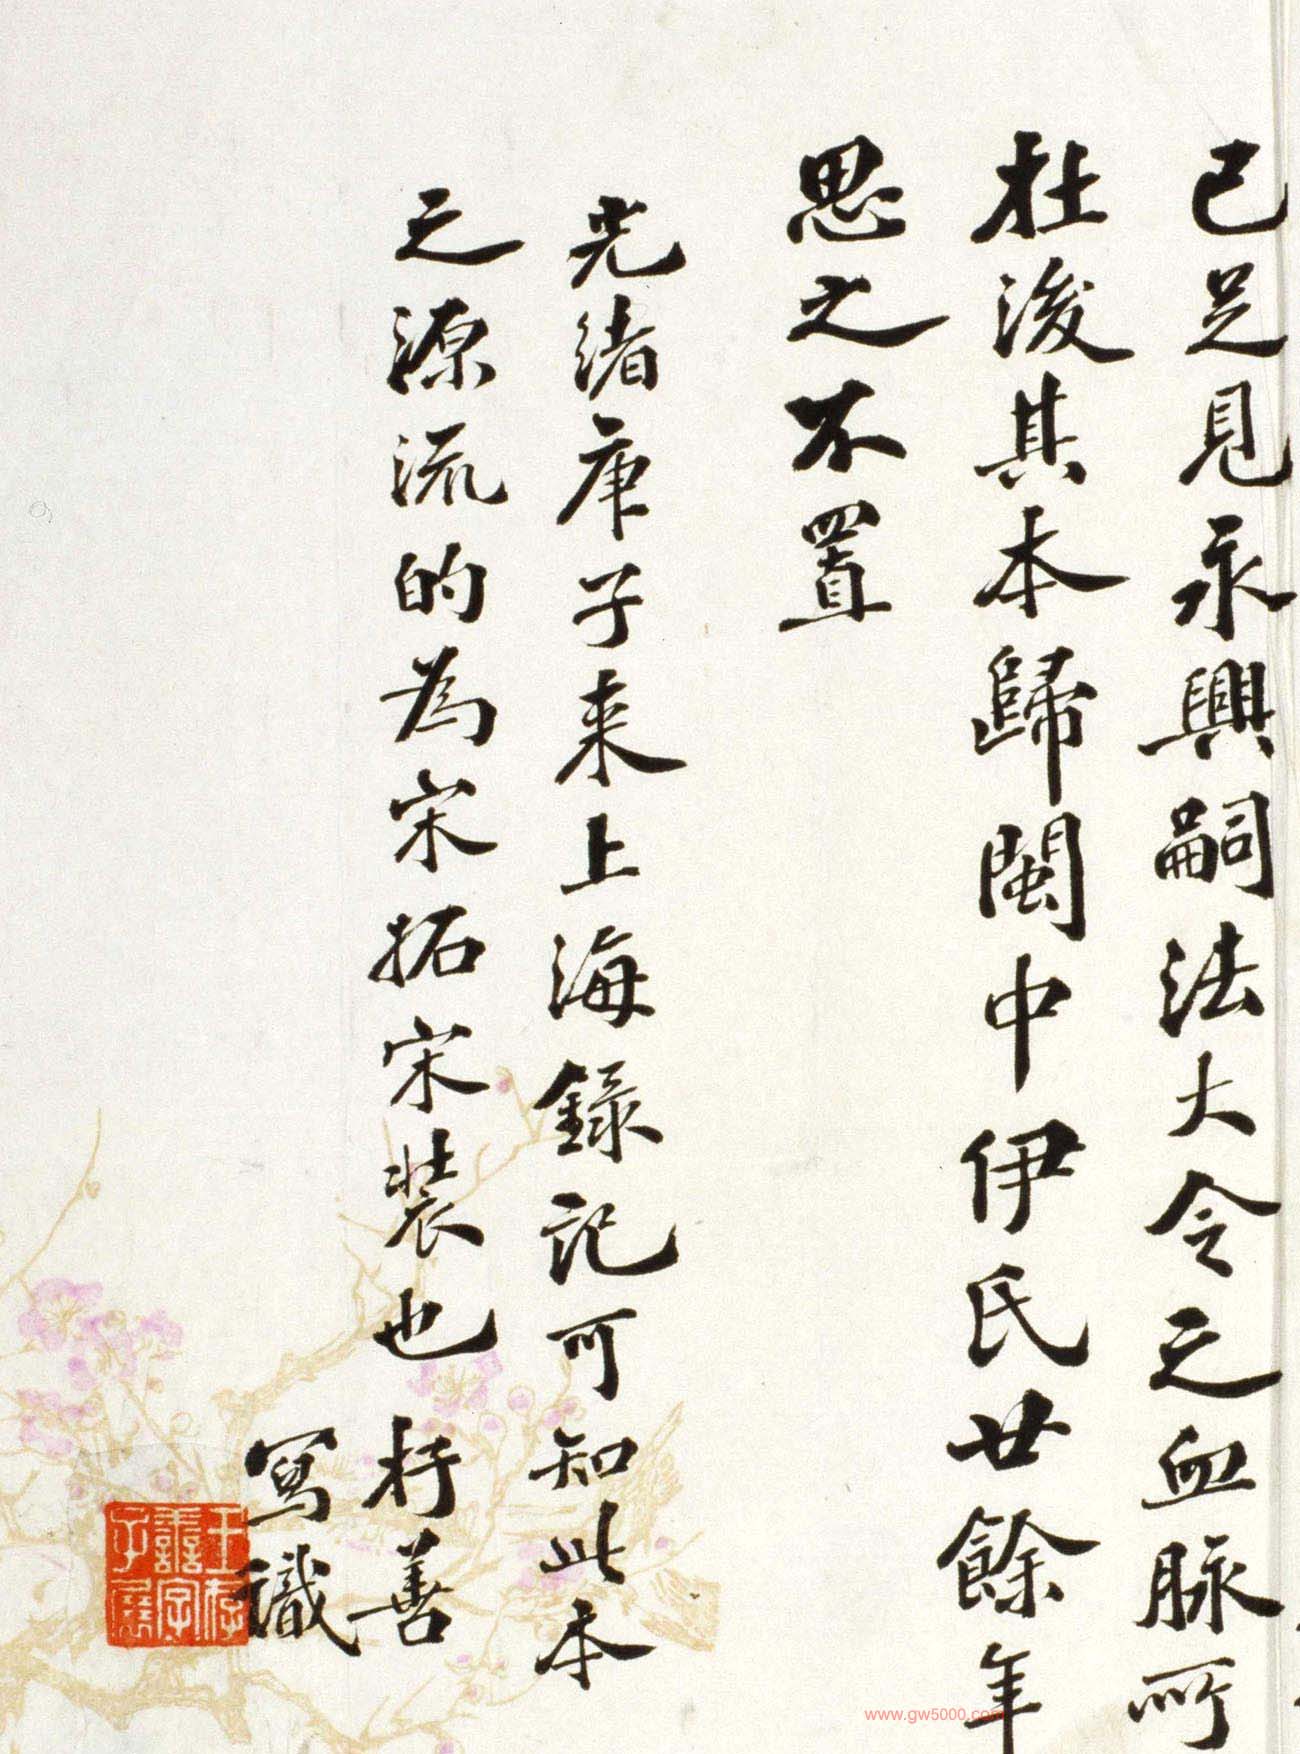 已足見永興嗣法大令之血脉所
在後其本歸閩中伊氏廿餘年
思之不置
光緒庚子来上海錄記可知此本
之源流的為宋拓宋装也 存善
寫識
王存
善字
子展
www.gw5000.com